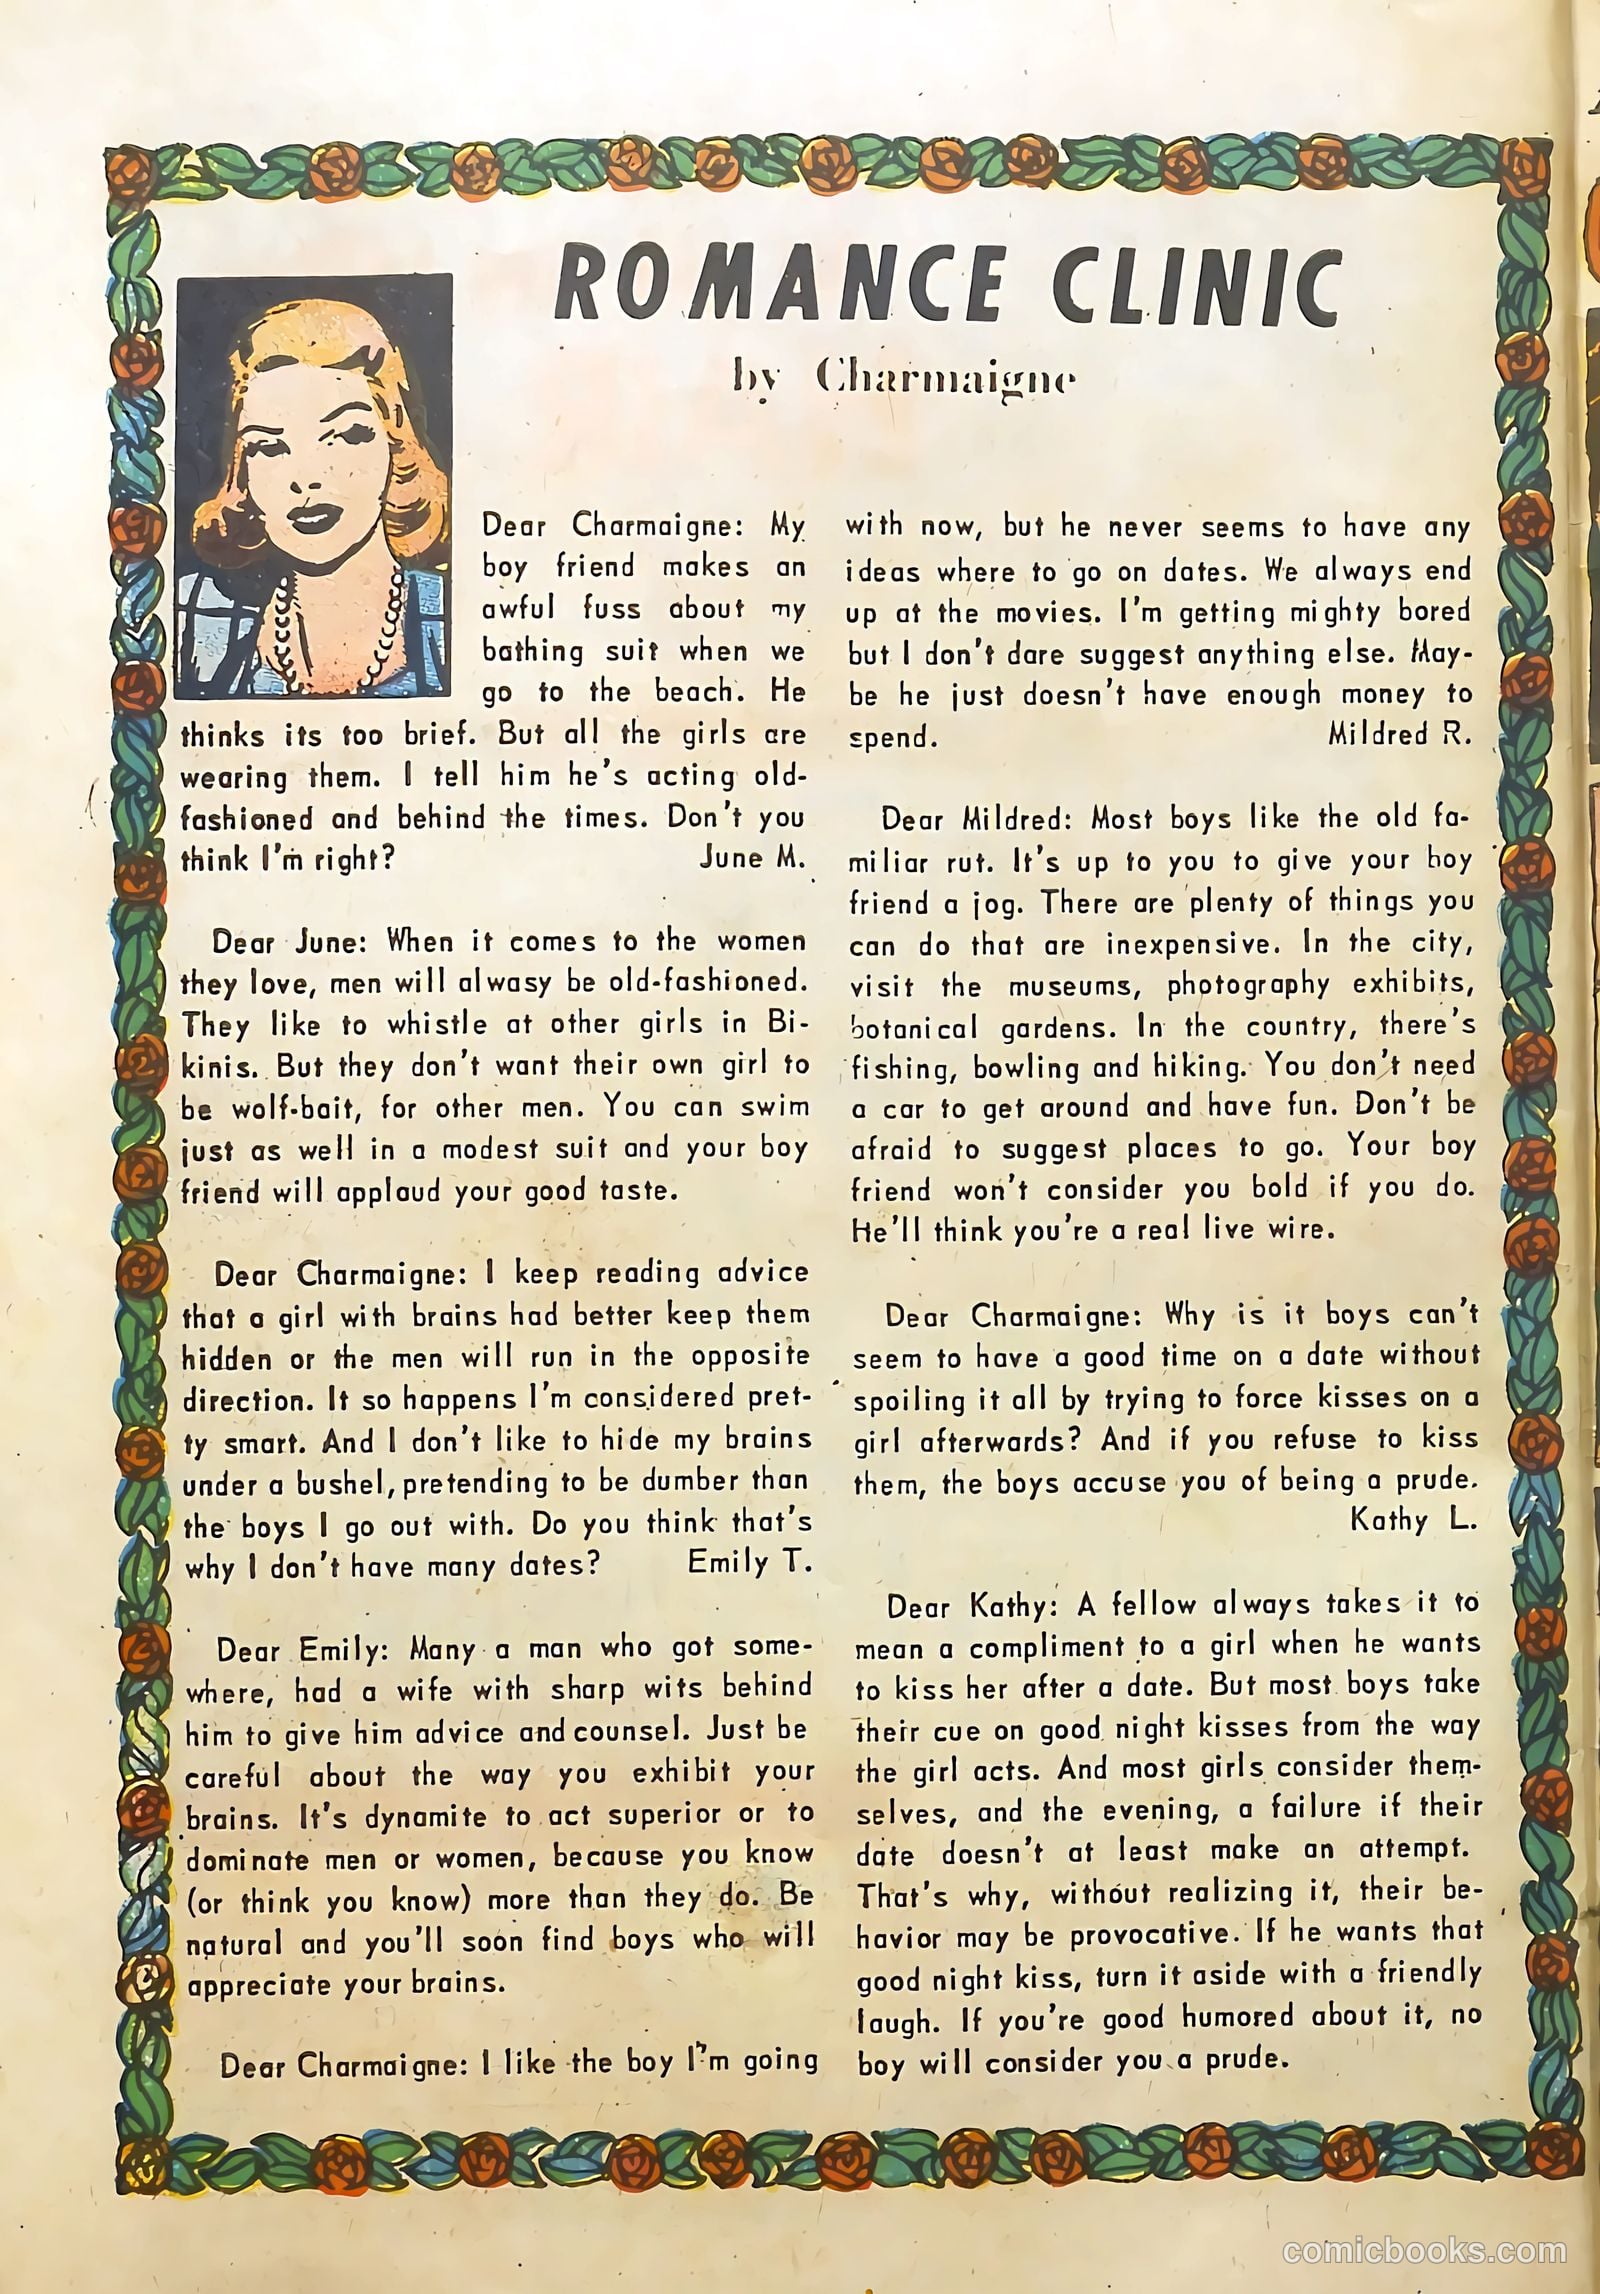 ROMANCE CLINIC
by Charmaigne
Dear Charmaigne: My
boy friend makes an
awful fuss about my
bathing suit when we
go to the beach. He
thinks its too brief. But all the girls are
wearing them. I tell him he's acting old-
fashioned and behind the times. Don't you
think I'm right? June M.
Dear June: When it comes to the women
they love, men will alwasy be old-fashioned.
They like to whistle at other girls in Bi-
kinis. But they don't want their own girl to
be wolf-bait, for other men. You can swim
just as well in a modest suit and your boy
friend will applaud your good taste.
Dear Charmaigne: I keep reading advice
that a girl with brains had better keep them
hidden or the men will run in the opposite
direction. It so happens I'm considered pret-
ty smart. And I don't like to hide my brains
under a bushel, pretending to be dumber than
the boys I go out with. Do you think that's
why I don't have many dates? Emily T.
Dear Emily: Many a man who got some-
where, had a wife with sharp wits behind
him to give him advice and counsel. Just be
careful about the way you exhibit your
brains. It's dynamite to act superior or to
dominate men or women, because you know
(or think you know) more than they do. Be
natural and you'll soon find boys who will
appreciate your brains.
Dear Charmaigne: I like the boy I'm going
with now, but he never seems to have any
ideas where to go on dates. We always end
up at the movies. I'm getting mighty bored
but I don't dare suggest anything else. May-
be he just doesn't have enough money to
spend. Mildred R.
Dear Mildred: Most boys like the old fa-
miliar rut. It's up to you to give your boy
friend a jog. There are plenty of things you
can do that are inexpensive. In the city,
visit the museums, photography exhibits,
botanical gardens. In the country, there's
fishing, bowling and hiking. You don't need
a car to get around and have fun. Don't be
afraid to suggest places to go. Your boy
friend won't consider you bold if you do.
He'll think you're a real live wire.
Dear Charmaigne: Why is it boys can't
seem to have a good time on a date without
spoiling it all by trying to force kisses on a
girl afterwards? And if you refuse to kiss
them, the boys accuse you of being a prude.
Kathy L.
Dear Kathy: A fellow always takes it to
mean a compliment to a girl when he wants
to kiss her after a date. But most boys take
their cue on good night kisses from the way
the girl acts. And most girls consider them-
selves, and the evening, a failure if their
date doesn't at least make an attempt.
That's why, without realizing it, their be-
havior may be provocative. If he wants that
good night kiss, turn it aside with a friendly
laugh. If you're good humored about it, no
boy will consider you a prude.
comicbooks.com